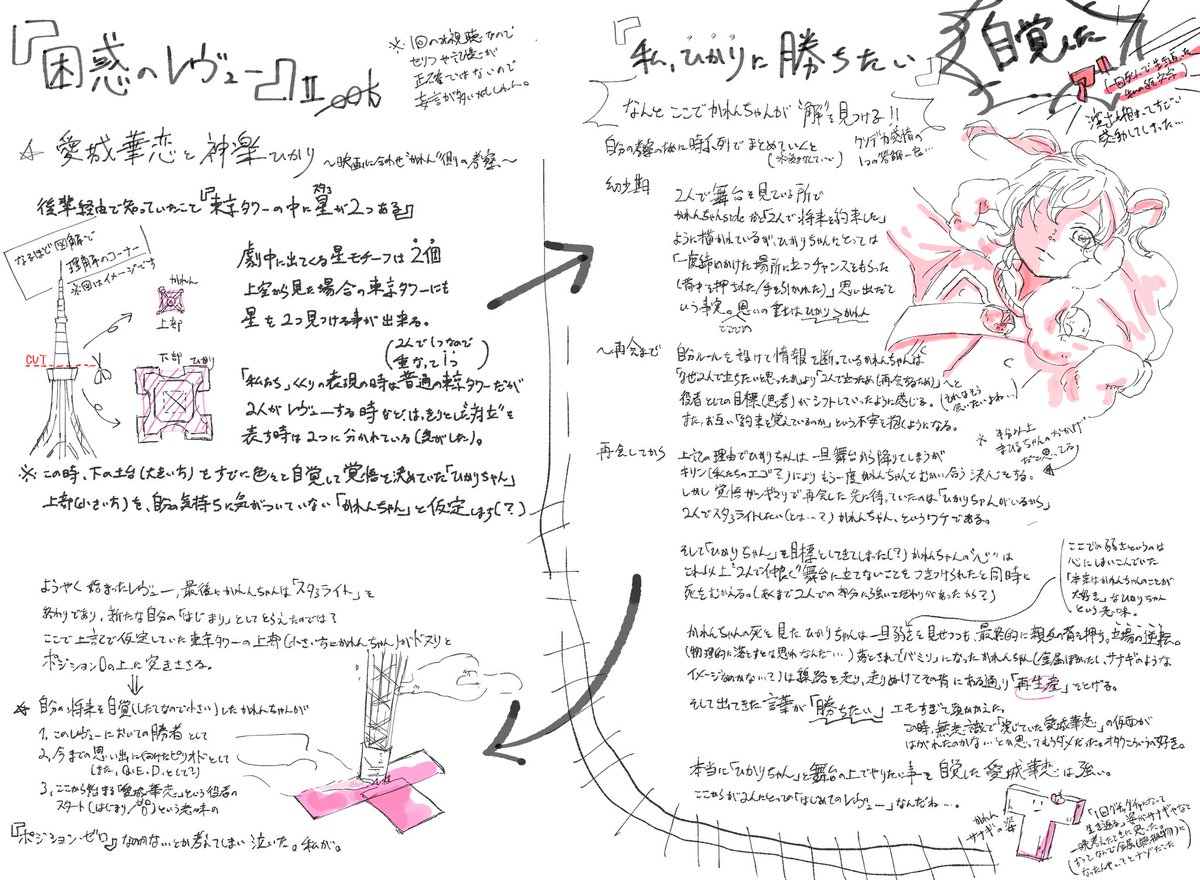 『困惑のレヴュー』Ⅱ
※1回のみ視聴なので
セリフや記憶が
正確ではないので
☆ 愛城華恋と神楽ひかり ～映画に合わせ"かれん"側の考察～
後輩経由で知っていたこと『東京タワーの中に星が2つある』
なるほど図解で
理解のコーナー
※図はイメージです
かれん
上部
CUT
下部 ひかり
劇中に出てくる星モチーフは2個
上空から見た場合の東京タワーにも
星を2つ見つける事が出来る。
(2人で1つなので
重なって1つ)
「私たち」くくりの表現の時は普通の東京タワーだが
2人がレヴューする時など、はっきりとした"対立"を
表す時は2つに分かれている(気がした)。
※この時、下の土台(大きい方)をすでに色々と自覚して覚悟を決めていた「ひかりちゃん」
上部(小さい方)を、自分の気持ちに気がついていない「かれんちゃん」と仮定します(?)
ようやく始まったレヴュー、最後にかれんちゃんは「スタァライト」を
終わりであり、新たな自分の「はじまり」としてとらえたのでは?
ここで上記で仮定していた東京タワーの上部(小さい方=かれんちゃん)がドスリと
ポジション0の上に突きささる。
☆ 自分の将来を自覚(したてなので小さい)したかれんちゃんが
1, このレヴューにおいての勝者として
2, 今までの思い出に向けたピリオドとして
(また、Q.E.D.として?)
3, ここから始まる「愛城華恋」という役者の
スタート(はじまり/ゼロ)という意味の
『ポジション・ゼロ』なのかな、とか考えてしまい泣いた。私が。
『私、ひかりに勝ちたい』
自覚した
ア"
演出も相まってすごい
感動してしまった…
なんとここでかれんちゃんが"解"を見つける!!
自分の考察の為に時系列でまとめていくと
クソデカ感情の
1つの答開…
幼少期
2人で舞台を見ている所で
かれんちゃんsideから「2人で将来を約束した」
ように描かれているが、ひかりちゃんにとっては
「一度諦めかけた場所に立つチャンスをもらった
(背中を押された/手を引かれた)」思い出だと
いう事実。思いの重さはひかり>かれん
ここでの
～再会まで
自分ルールを設けて情報を断っているかれんちゃんは
「なぜ2人で立ちたいと思ったか」より「2人で立つため(再会するため)」へと
役者としての目標(思考)がシフトしていったように感じる。(それはそう
会いたいよね…)
また、お互い「約束を覚えているのか」という不安を抱くようになる。
※半分以上
まひるちゃんのおかげ
だと思ってる
再会してから
上記の理由でひかりちゃんは一旦舞台から降りてしまうが
キリン(私たちのエゴ?)によりもう一度かれんちゃんとむかい合う決心をする。
しかし覚悟ガンギマリで再会した先に待っていたのは「ひかりちゃんがいるから」
2人でスタァライトしたい(とは…?)かれんちゃん、というワケである。
そして「ひかりちゃん」を目標としてきてしまった(?)かれんちゃんの"心"は
これ以上"2人で仲良く"舞台に立てないことをつきつけられたと同時に
死をむかえる。(あくまで2人での部分に強いこだわりがあったから?)
ここでの弱さというのは
心にしまいこんでいた
「本当はかれんちゃんのことが
大好き」なひかりちゃん
という意味。
かれんちゃんの死を見たひかりちゃんは一旦弱さを見せつつも、最終的に親友の背を押す。立場の逆転。
(物理的に落とすとは思わなんだ…)落とされて「バミリ」になったかれんちゃん(金属ぽかったし、サナギのような
イメージなのかない?)は線路を走り、走りぬけてその背にある通り「再生産」をとげる。
そして出てきた言葉が「勝ちたい」エモすぎて頭かかえた。
この時、無意識で「演じていた愛城華恋」の仮面が
はがれたのかな…とか思ってもうダメだった。オタクこういうの好き。
本当に「ひかりちゃん」と舞台の上でやりたい事を自覚した愛城華恋は強い。
ここからが2人にとっての「はじめてのレヴュー」なんだね…。
かれん
サナギの姿
「1回グチャグチャになって
生き返る」姿がサナギやなて
一晩考えたときに思った。